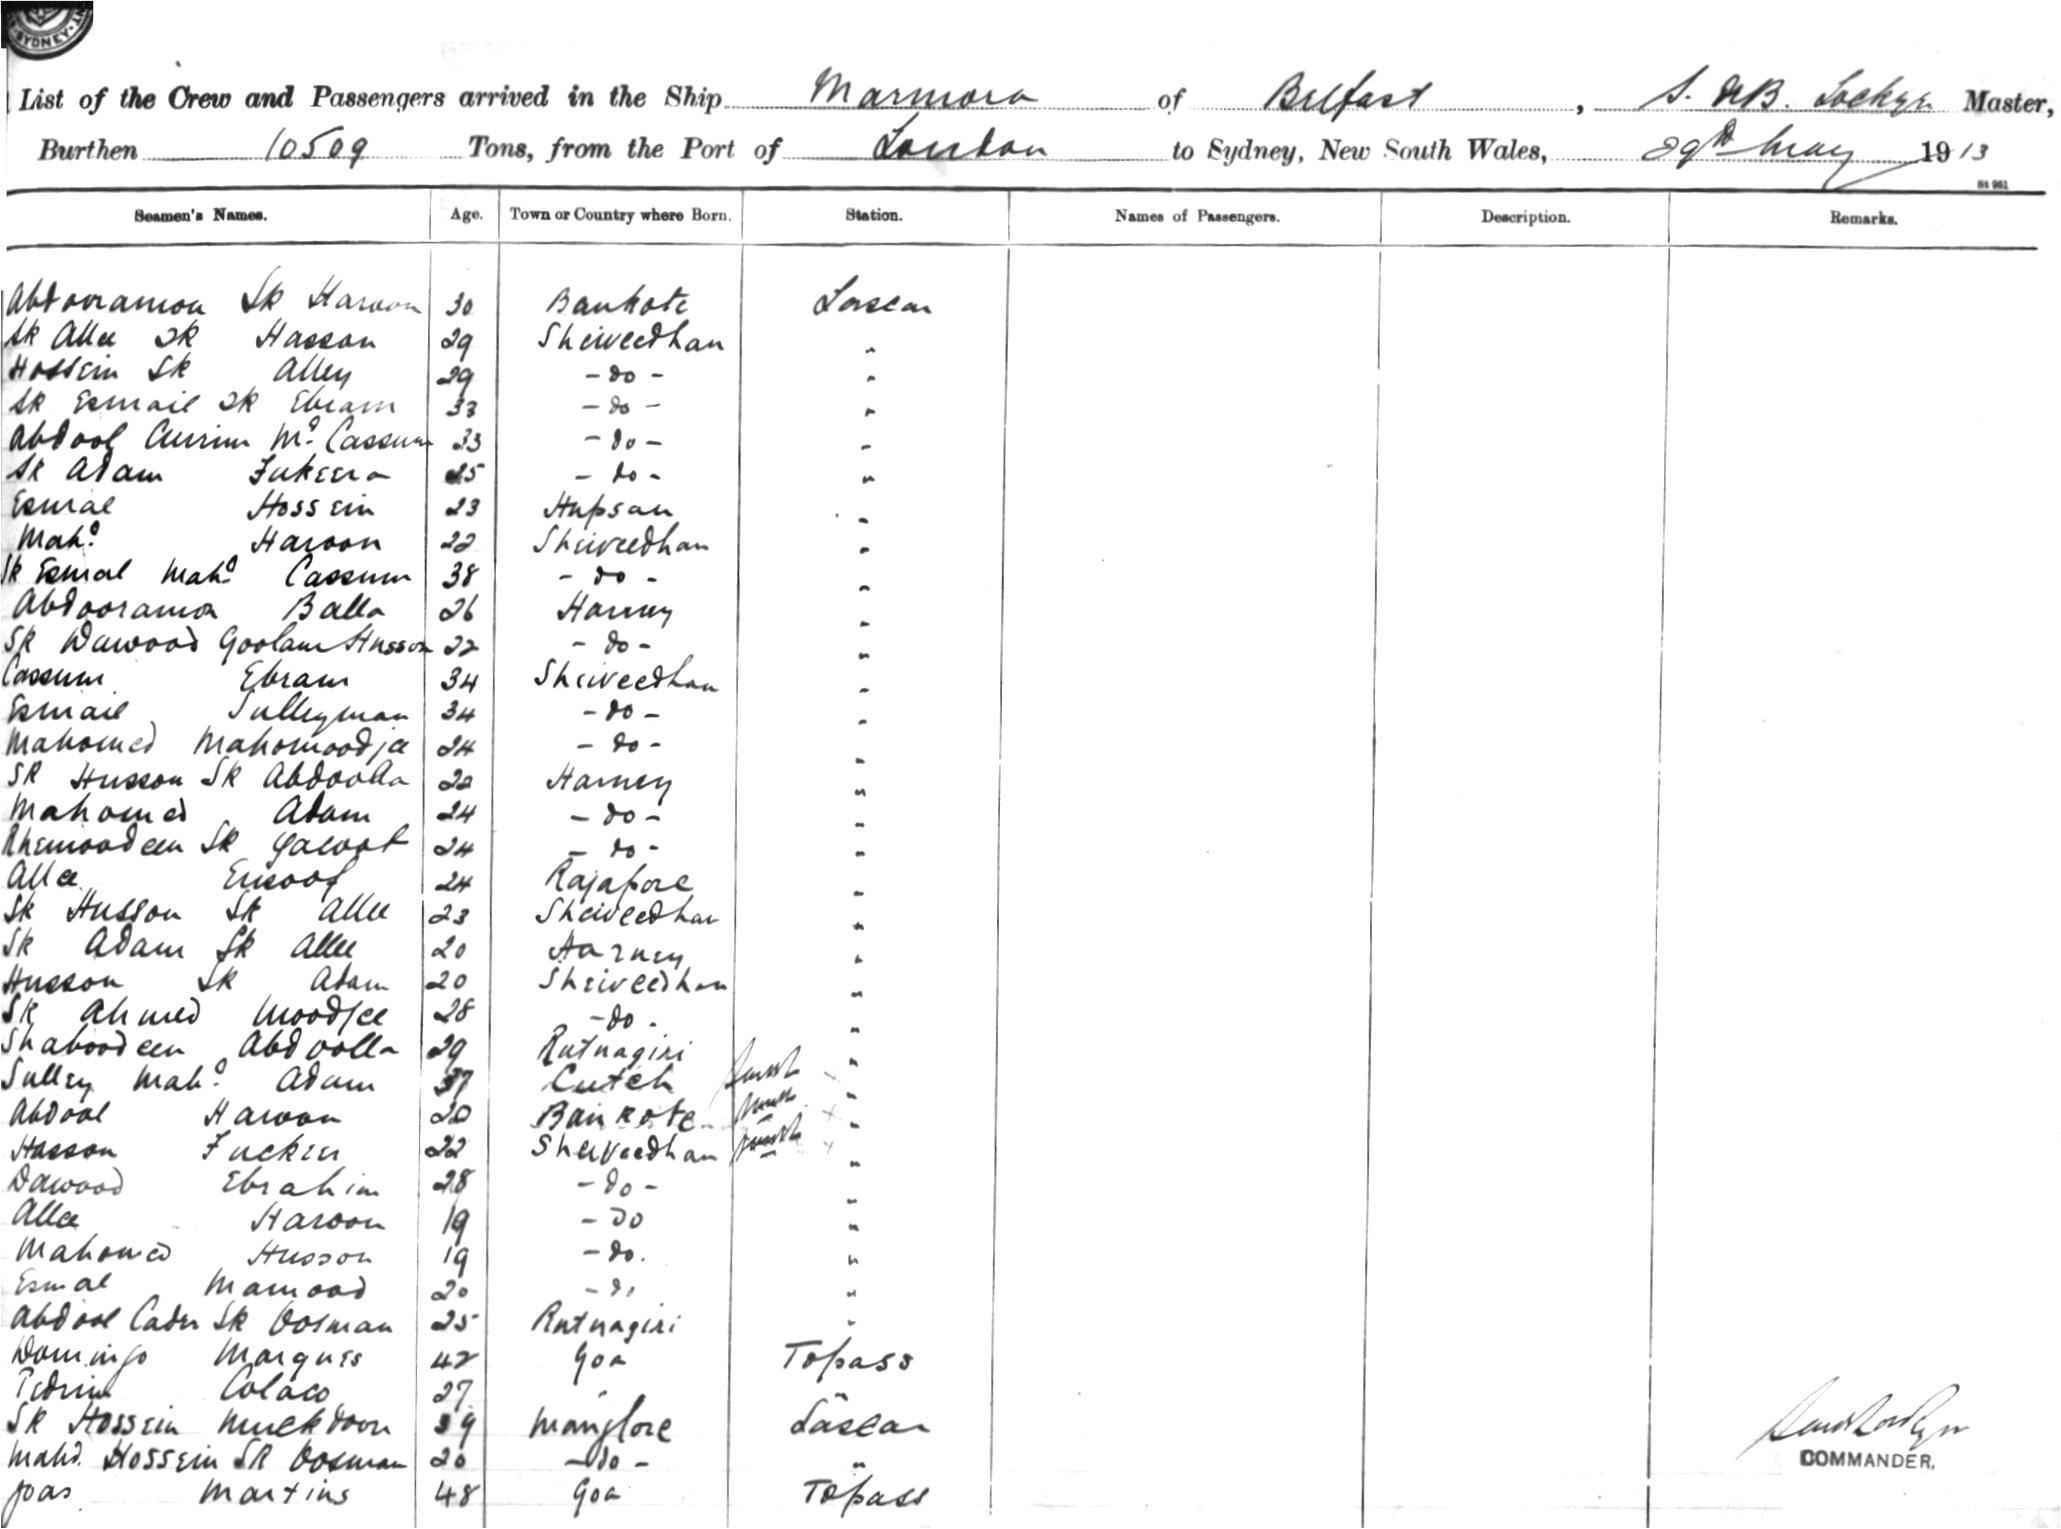 SYDNEY
List of the Crew and Passengers arrived in the Ship Marmora of Belfast, Master,
Burthen 10509 Tons, from the Port of London to Sydney, New South Wales, 29th May 1913
St 961
Seamen's Names. Age. Town or Country where Born. Station. Names of Passengers. Description. Remarks.
Abdooramon Sk Haroon 30 Bankote Lascar
Sk Allee Sk Hasson 29 Sheiveedhan "
Hossein Sk Alley 29 - do - "
Sk Esmail Sk Ebram 33 - do - "
Abdool Currim Md. Cassum 33 - do - "
Sk Adam Fukeera 25 - do - "
Esmal Hossein 23 Hupsan "
Mahd. Haroon 22 Sheiveedhan "
Sk Esmal Mahd. Cassum 38 - do - "
Abdooramon Balla 26 Harney "
Sk Dawood Goolam Husson 22 - do - "
Cassum Ebram 34 Sheiveedhan "
Esmail Sulleyman 34 - do - "
Mahomed Mahomoodjee 24 - do - "
Sk Husson Sk Abdoolla 22 Harney "
Mahomed Adam 24 - do - "
Sk 24 - do - "
Allee Eusoof 24 Rajapore "
Sk Husson Sk Allee 23 Sheiveedhan "
Sk Adam Sk Allee 20 Harney "
Husson Sk Adam 20 Sheiveedhan "
Sk Ahmed Moodjee 28 - do - "
Shaboodeen Abdoolla 29 Rutnagiri "
Sulley Mahd. Adam 37 Cutch "
Abdool Haroon 20 Bankote "
Hasson Fuckir 22 Sheiveedhan "
Dawood Ebrahim 28 - do - "
Allee Haroon 19 - do "
Mahomed Husson 19 - do. "
Esmal Mamood 20 - do "
Abdool Cader Sk Oosman 25 Rutnagiri "
Domingo Marques 42 Goa Topass
Colaco 27 " "
Sk Hossein Muckdoom 39 Manglore Lascar
Mahd. Hossein Sk Oosman 20 - do - "
Joas Martins 48 Goa Topass
COMMANDER.